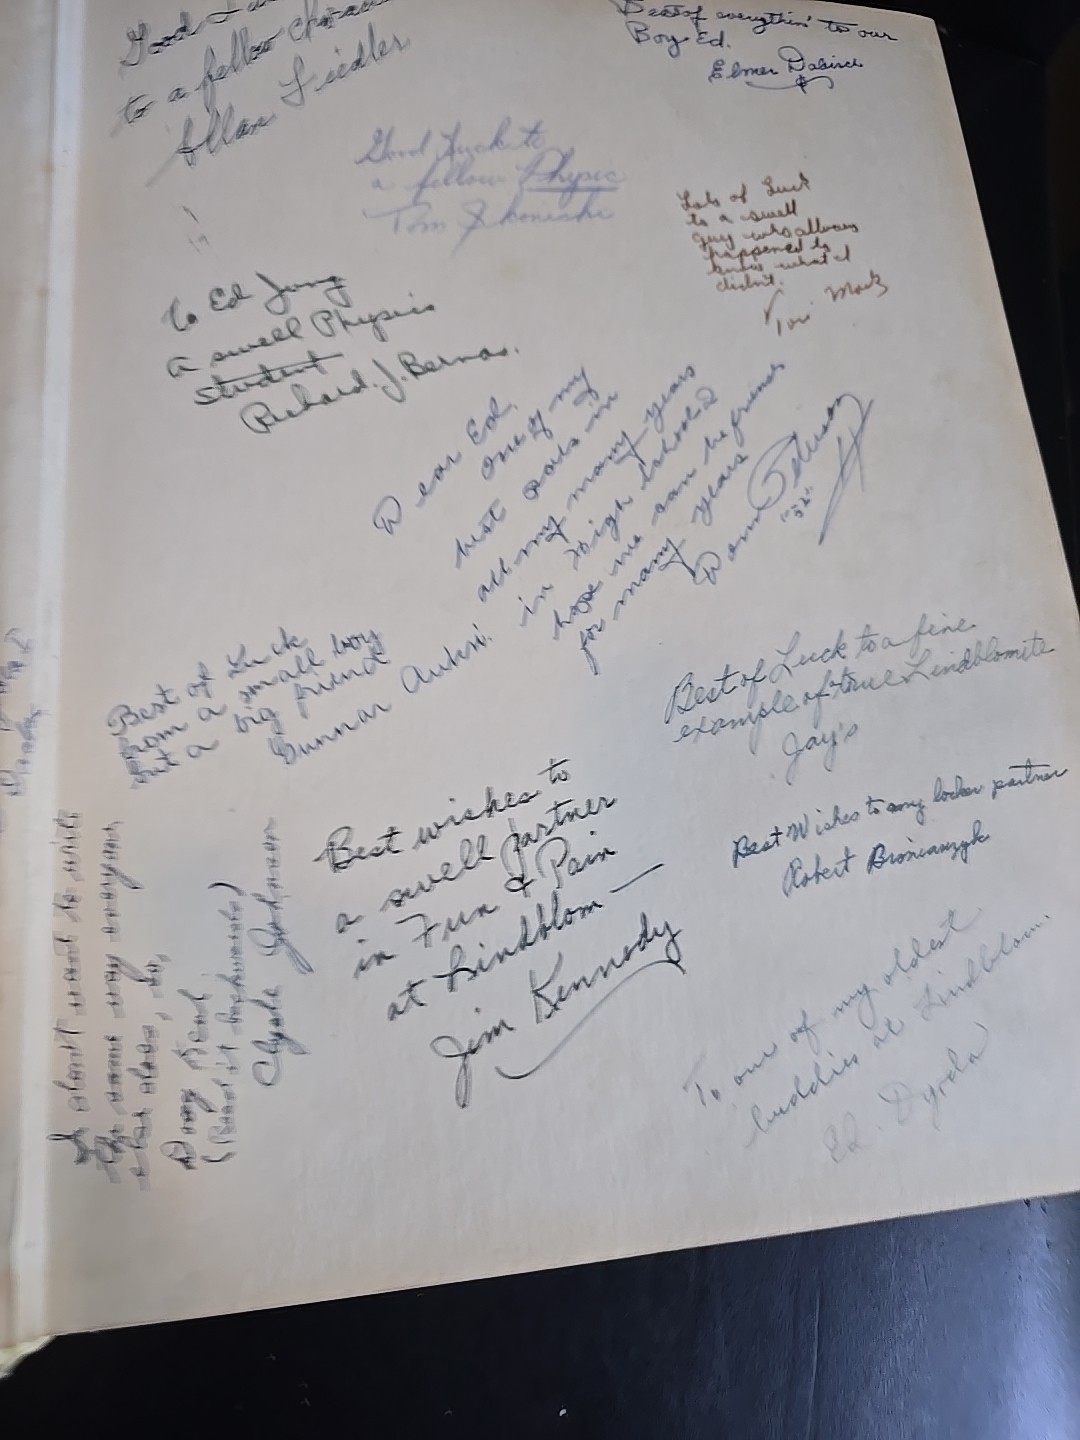 Good
to a fellow
Allan Fiedler
Best of everythin' to our
Boy Ed.
Elmer
Good Luck to
a fellow Physic
Tom
Lots of Luck
to a swell
guy who allways
happened to
know what I
didn't.
Tom
To Ed Jung
a swell Physics
student
Richard. J. Bernas.
Dear Ed.
one of my
best pals in
all my many years
in High School I
hope we can be friends
for many years
Donn Peterson
"52"
Best of Luck
from a small boy
but a big friend
Gunnar
Best of Luck to a fine
example of true Lindblomite
Jay's
Best Wishes to my locker partner
Robert
Best wishes to
a swell partner
in Fun & Pain
at Lindblom —
Jim Kennedy
To one of my oldest
buddies at Lindblom.
Ed. Dyrda
I don't want to write
the same way everyone
else does, so,
Doog Kcul
(Read it backwards)
Clyde Johnson